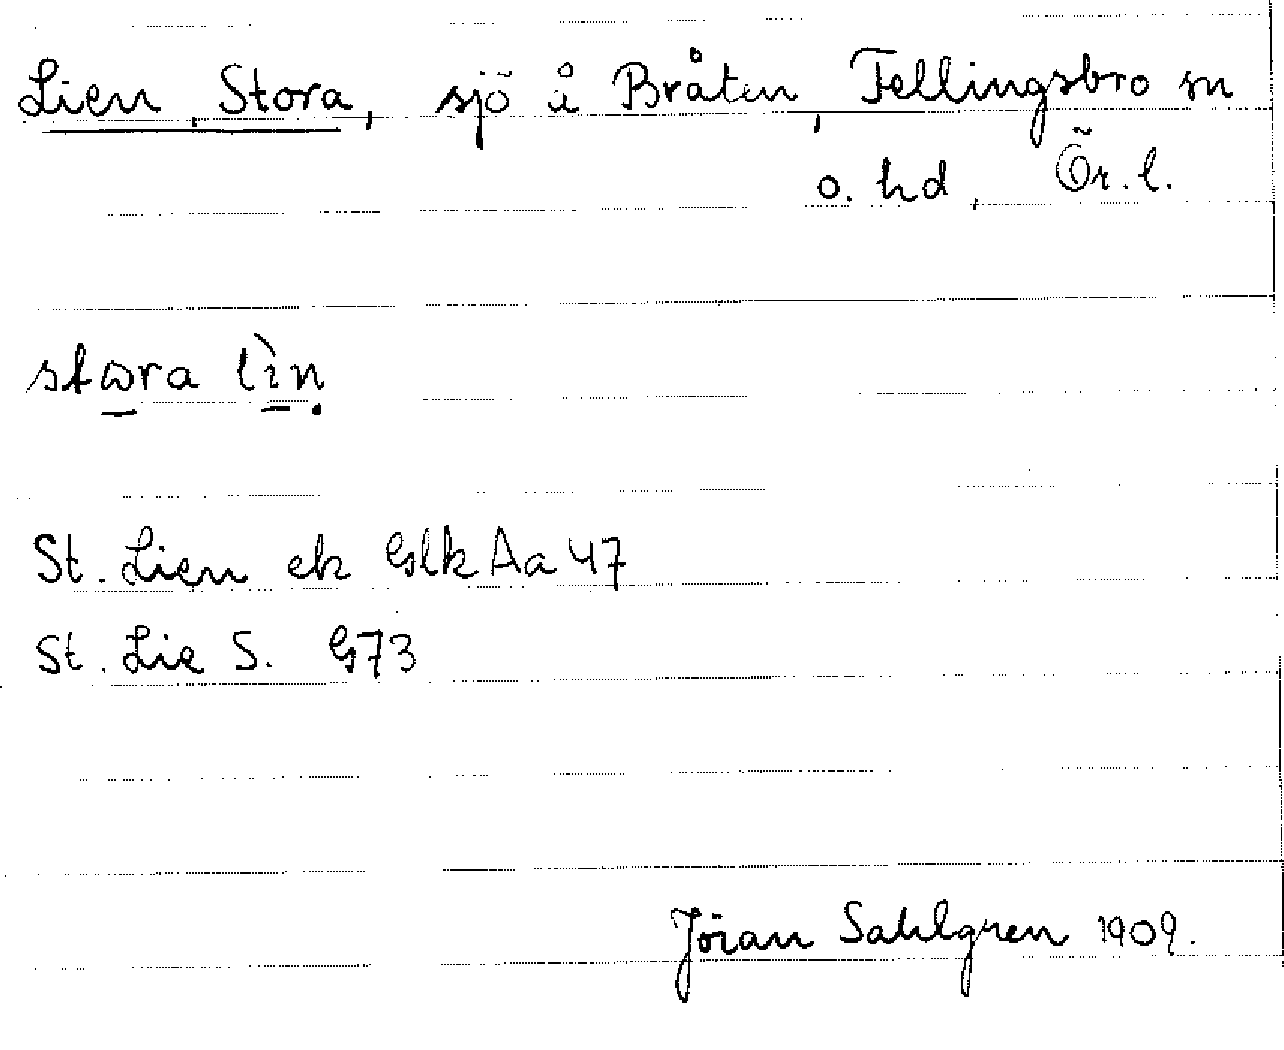 Lien, Stora, sjö å Bråten, Fellingsbro sn
o. hd, Ör. l.
stωra lìn.
St. Lien ek GlkAa47
St. Lie S. G73
Jöran Sahlgren 1909.